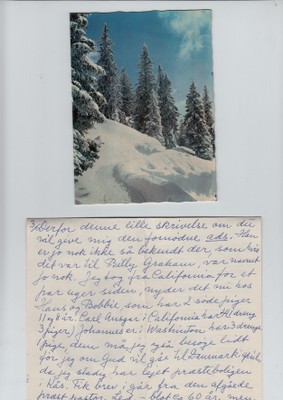 3) Derfor denne lille skrivelse om du
vil give mig den fornødne ads. Han
er jo nok ikke så bekendt der som hvis
det var til Billy Graham, var navnet
jo nok. Jeg tog fra California for et
par uger siden, nyder det nu hos
Hans og Bobbie, som har 2 söde piger
11 og 8 år. Carl Ansgar i California har 4 (1 dreng
3 piger) Johannes er i Washinton har 3 drenge
1 pige, dem må jeg også besöge lidt
för jeg om Gud vil går til Danmark
da jeg stadig har lejet præsteboligen
i Kås. Fik brev i går fra den afgåede
præst pastor - blot ca 60 år. men